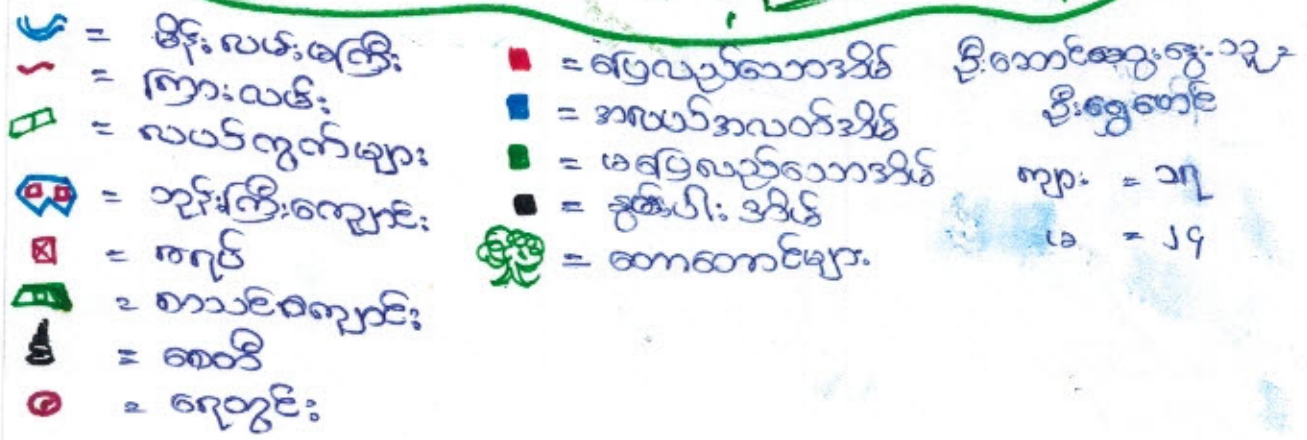 = မိန်းလမ်းမကြီး
= ကြားလမ်း
= လယ်ကွက်များ
= ဘုန်းကြီးကျောင်း
= ကရပ်
= စာသင်ကျောင်း
= စေတီ
= ရေတွင်း
= ပြေလည်သောအိမ်
= အလယ်အလတ်အိမ်
= မပြေလည်သောအိမ်
= နွမ်းပါးအိမ်
= တောတောင်များ
ဦးအောင်ဆွေ
ဦးရွှေတောင်
ကျား = ၁၅
မ = ၂၄